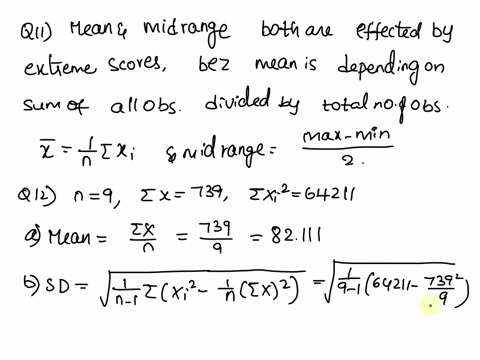 Q11) Mean & midrange both are effected by
extreme scores, bcz mean is depending on
sum of all obs. divided by total no. of obs.
x̄ = 1/n Σ xi & midrange = (max-min)/2.
Q12) n=9, Σx=739, Σxi²=64211
a) Mean = Σx/n = 739/9 = 82.111
b) SD = √(1/(n-1) Σ(xi² - 1/n (Σx)²) = √(1/(9-1) (64211 - 739²/9)